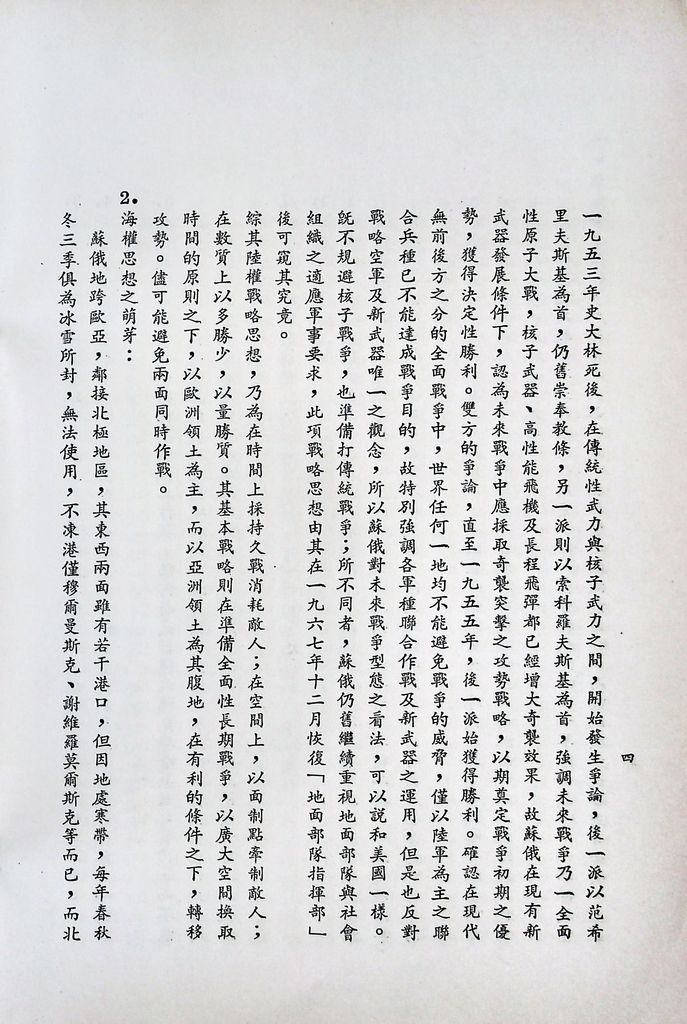 四
一九五三年史大林死後，在傳統性武力與核子武力之間，開始發生爭論，後一派以范希
里夫斯基為首，仍舊崇奉教條，另一派則以索科羅夫斯基為首，強調未來戰爭乃一全面
性原子大戰，核子武器、高性能飛機及長程飛彈都已經增大奇襲效果，故蘇俄在現有新
武器發展條件下，認為未來戰爭中應採取奇襲突擊之攻勢戰略，以期奠定戰爭初期之優
勢，獲得決定性勝利。雙方的爭論，直至一九五五年，後一派始獲得勝利。確認在現代
無前後方之分的全面戰爭中，世界任何一地均不能避免戰爭的威脅，僅以陸軍為主之聯
合兵種已不能達成戰爭目的，故特別強調各軍種聯合作戰及新武器之運用，但是也反對
戰略空軍及新武器唯一之觀念，所以蘇俄對未來戰爭型態之看法，可以說和美國一樣。
既不規避核子戰爭，也準備打傳統戰爭；所不同者，蘇俄仍舊繼續重視地面部隊與社會
組織之適應軍事要求，此項戰略思想由其在一九六七年十二月恢復「地面部隊指揮部」
後可窺其究竟。
綜其陸權戰略思想，乃為在時間上採持久戰消耗敵人；在空間上，以面制點牽制敵人；
在數質上以多勝少，以量勝質。其基本戰略則在準備全面性長期戰爭，以廣大空間換取
時間的原則之下，以歐洲領土為主，而以亞洲領土為其腹地，在有利的條件之下，轉移
攻勢。儘可能避免兩面同時作戰。
2.海權思想之萌芽：
蘇俄地跨歐亞，鄰接北極地區，其東西兩面雖有若干港口，但因地處寒帶，每年春秋
冬三季俱為冰雪所封，無法使用，不凍港僅穆爾曼斯克、謝維羅莫爾斯克等而已，而北